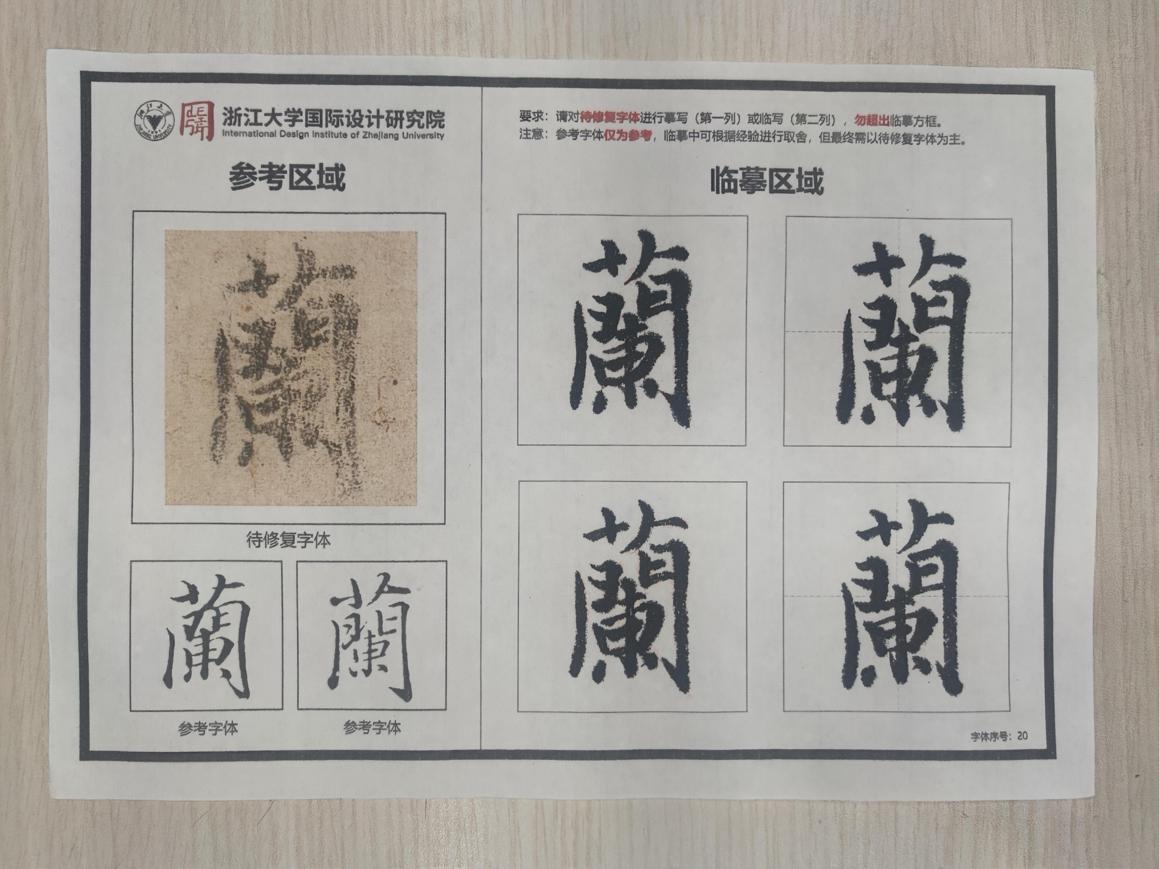 浙江大学国际设计研究院
International Design Institute of Zhejiang University
参考区域
蘭
待修复字体
蘭
蘭
参考字体
参考字体
要求:请对待修复字体进行摹写(第一列)或临写(第二列),勿超出临摹方框。
注意:参考字体仅为参考,临摹中可根据经验进行取舍,但最终需以待修复字体为主。
临摹区域
蘭
蘭
蘭
蘭
字体序号:20